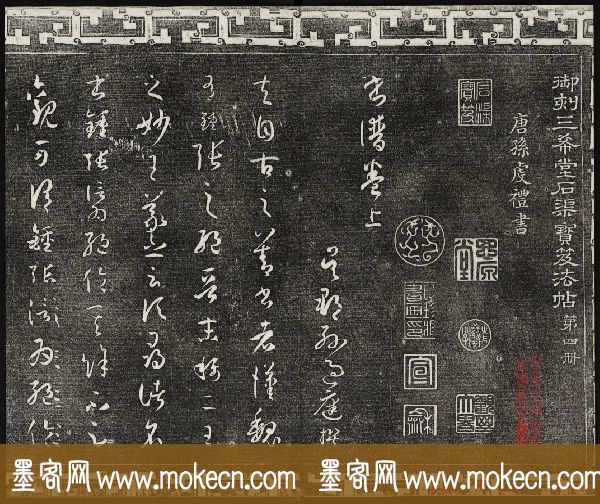 御刻三希堂石渠寶笈法帖 第四册
唐孫虔禮書
石渠寶笈
書譜卷上
吳郡孫過庭撰
夫自古之善書者漢魏
有鍾張之絕晉末稱二王
之妙王羲之云頃尋諸名
書鍾張信為絕倫其餘不足
觀可謂鍾張云沒而羲獻
墨客网 www.mokecn.com 墨客网 www.mokecn.com